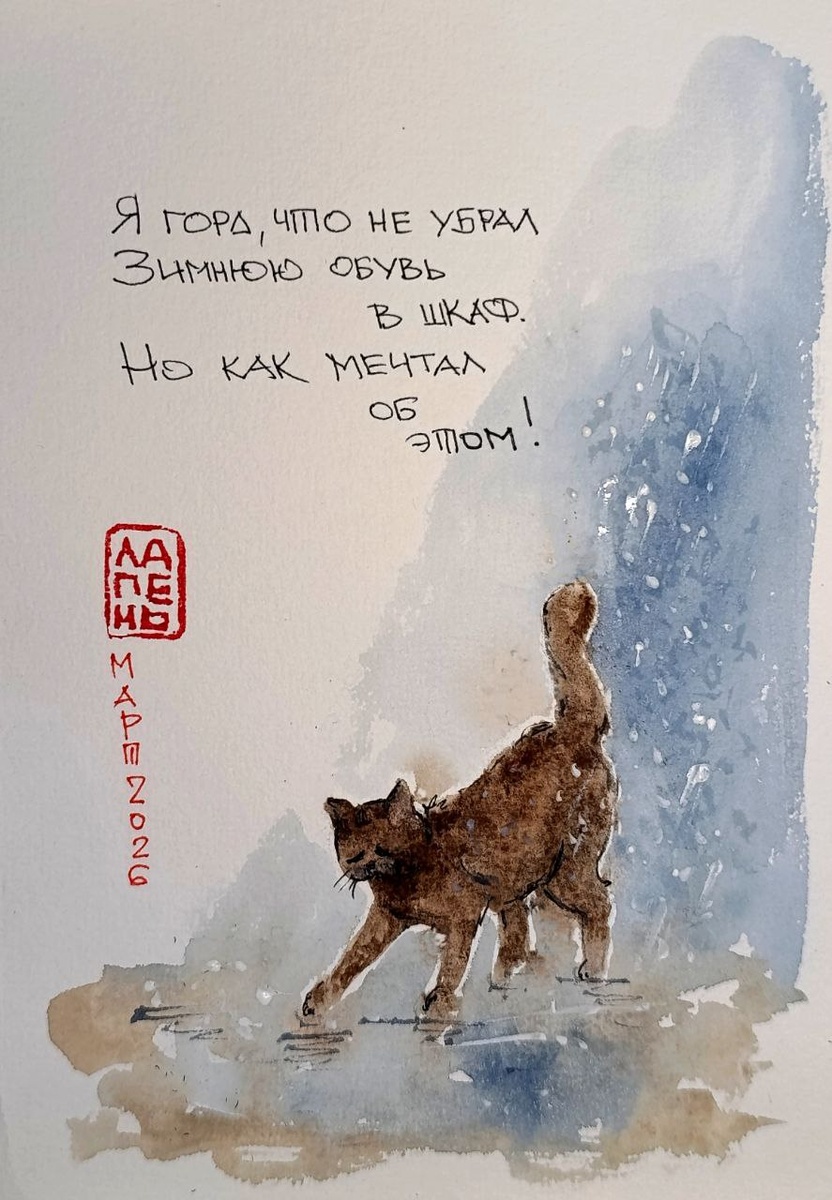 Я ГОРД, ЧТО НЕ УБРАЛ
ЗИМНЮЮ ОБУВЬ
В ШКАФ.
НО КАК МЕЧТАЛ
ОБ
ЭТОМ!
ЛА
ПЕ
НЬ
МАРТ 2026